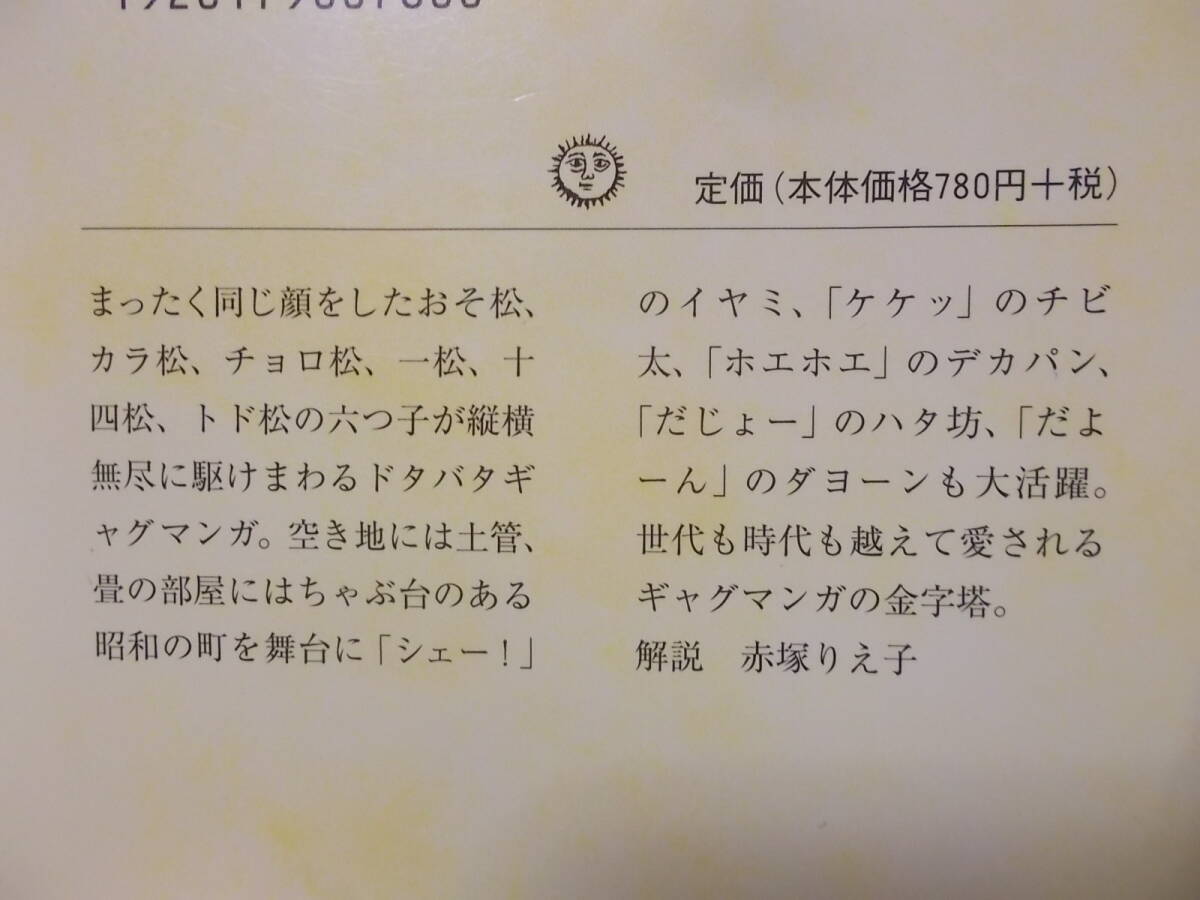 定価(本体価格780円+税)
まったく同じ顔をしたおそ松、
カラ松、チョロ松、一松、十
四松、トド松の六つ子が縦横
無尽に駆けまわるドタバタギ
ャグマンガ。空き地には土管、
畳の部屋にはちゃぶ台のある
昭和の町を舞台に「シェー!」
のイヤミ、「ケケッ」のチビ
太、「ホエホエ」のデカパン、
「だじょー」のハタ坊、「だよ
ーん」のダヨーンも大活躍。
世代も時代も越えて愛される
ギャグマンガの金字塔。
解説　赤塚りえ子